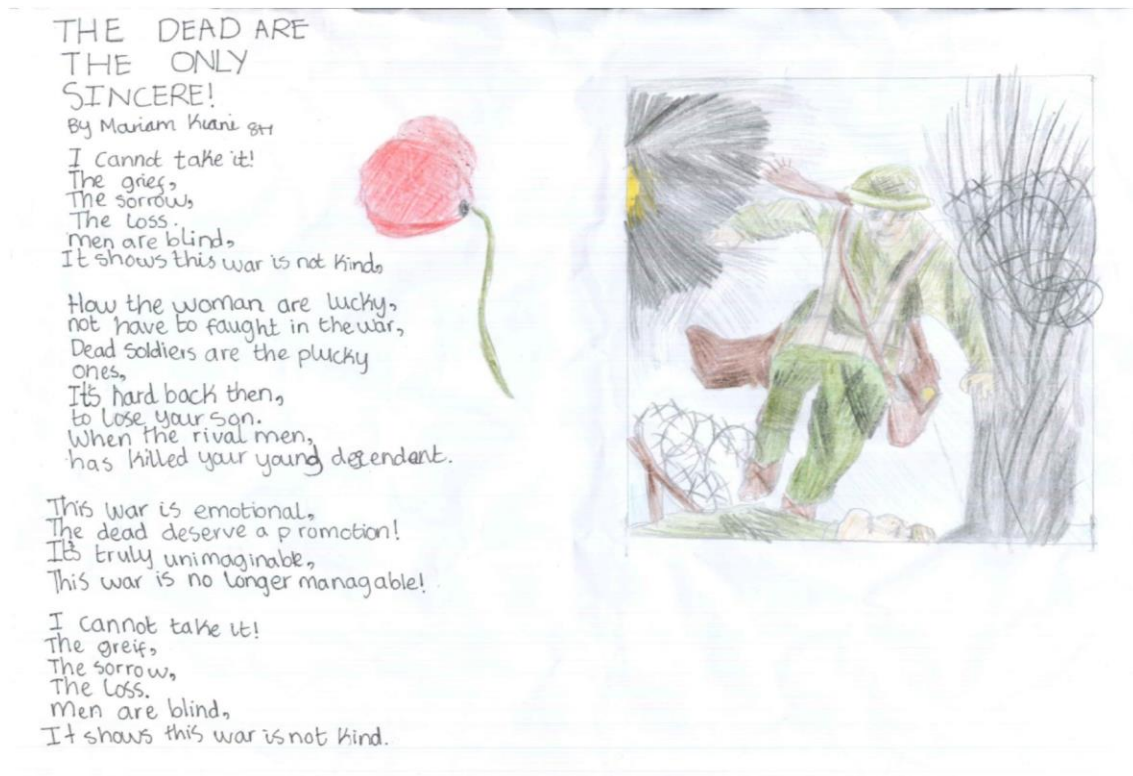 THE DEAD ARE
THE ONLY
SINCERE!
By Mariam Kiani 8H
I cannot take it!
The grief,
The sorrow,
The loss.
men are blind,
It shows this war is not kind,
How the woman are lucky,
not have to faught in the war,
Dead soldiers are the plucky
ones,
It's hard back then,
to lose your son.
When the rival men,
has killed your young decendent.
This war is emotional,
The dead deserve a promotion!
It's truly unimaginable,
This war is no longer managable!
I cannot take it!
The greif,
The sorrow,
The loss.
men are blind,
It shows this war is not kind.